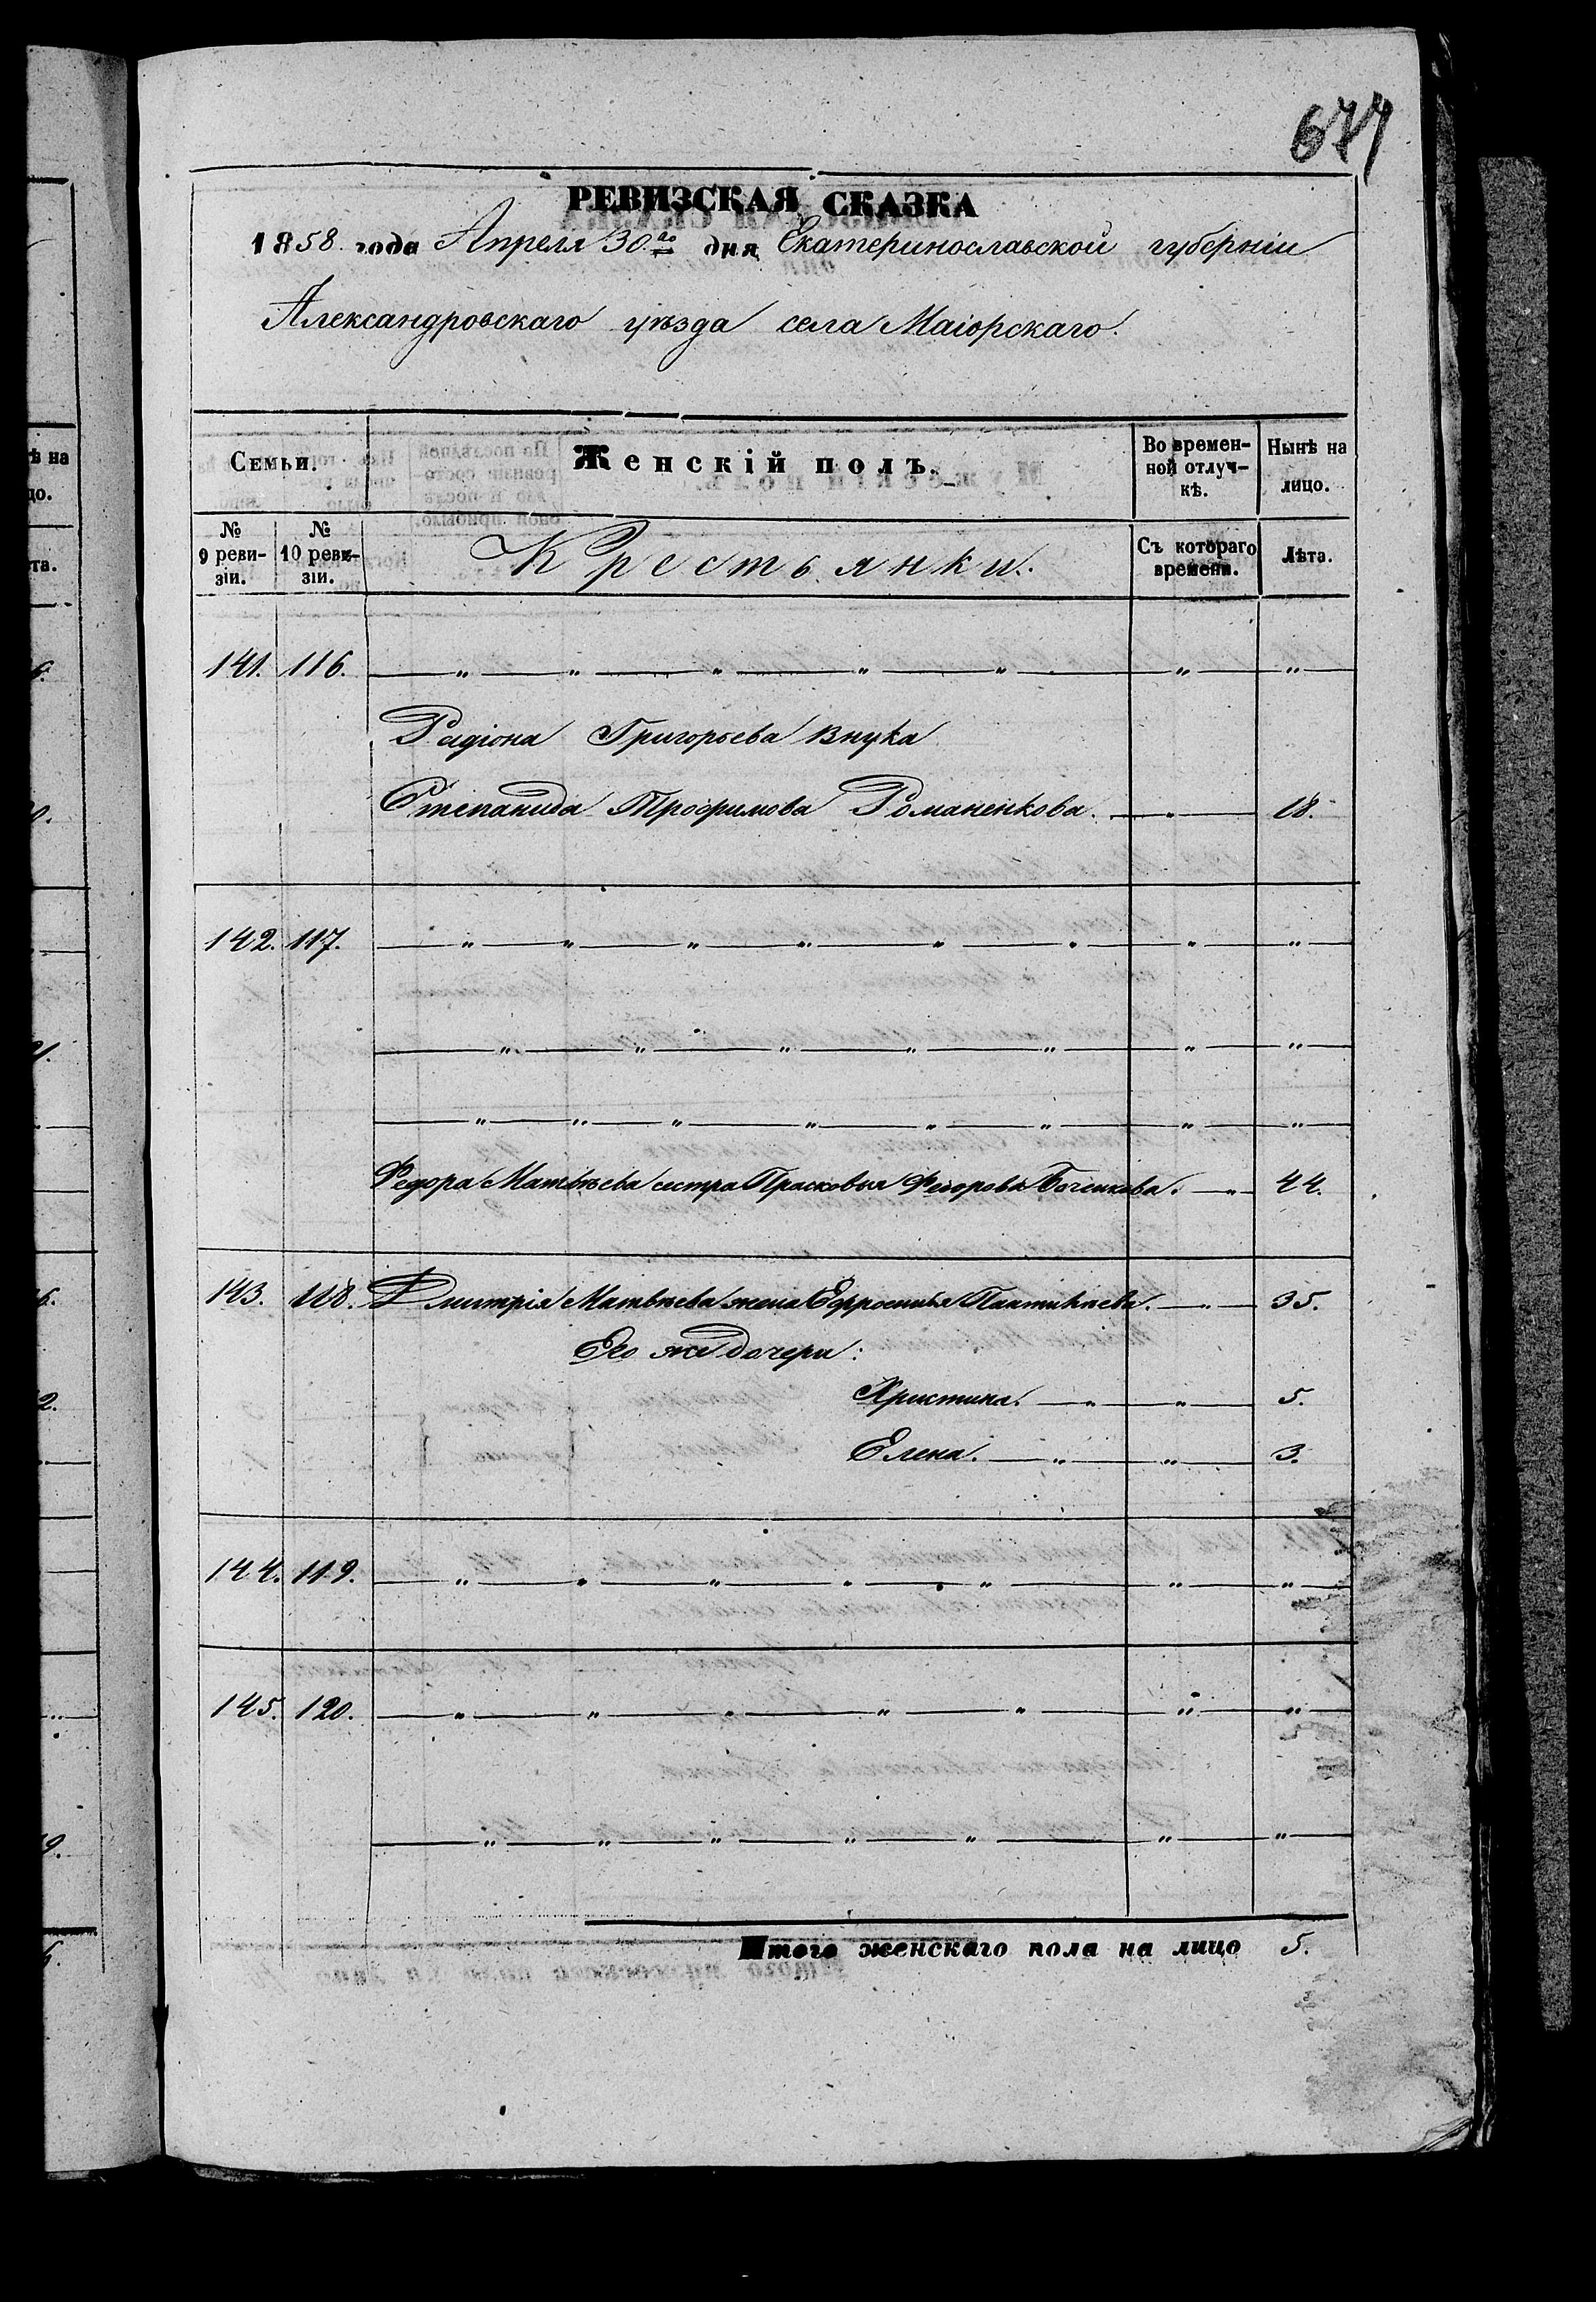 677
РЕВИЗСКАЯ СКАЗКА
1858 года Апреля 30го дня Екатеринославской губерніи
Александровскаго уѣзда села Маіорскаго.
Семьи. Женскій полъ. Во времен-ной отлуч-кѣ. Нынѣ на лицо.
№ 9 реви-зіи. № 10 реви-зіи. Крестьянки. Съ котораго времени. Лѣта.
141. 116. — „ — „ — „ — „ — „ — „ — „ —
Радіона Григорьева внука
Степанида Трофимова Романенкова. — „ — 18.
142. 117. — „ — „ — „ — „ — „ — „ — „ — „ —
— „ — „ — „ — „ — „ — „ — „ —
— „ — „ — „ — „ — „ — „ — „ — „ —
Федора Матвѣева сестра Прасковья Федорова — „ — 44.
143. 118. Дмитрія Матвѣева жена Ефросинья — „ — 35.
Его же дочери:
Христина. — „ — „ — 5.
Елена. — „ — „ — 3.
144. 119. — „ — „ — „ — „ — „ — „ — „ —
145. 120. — „ — „ — „ — „ — „ — „ — „ —
— „ — „ — „ — „ — „ — „ — „ —
Итого женскаго пола на лицо 5.